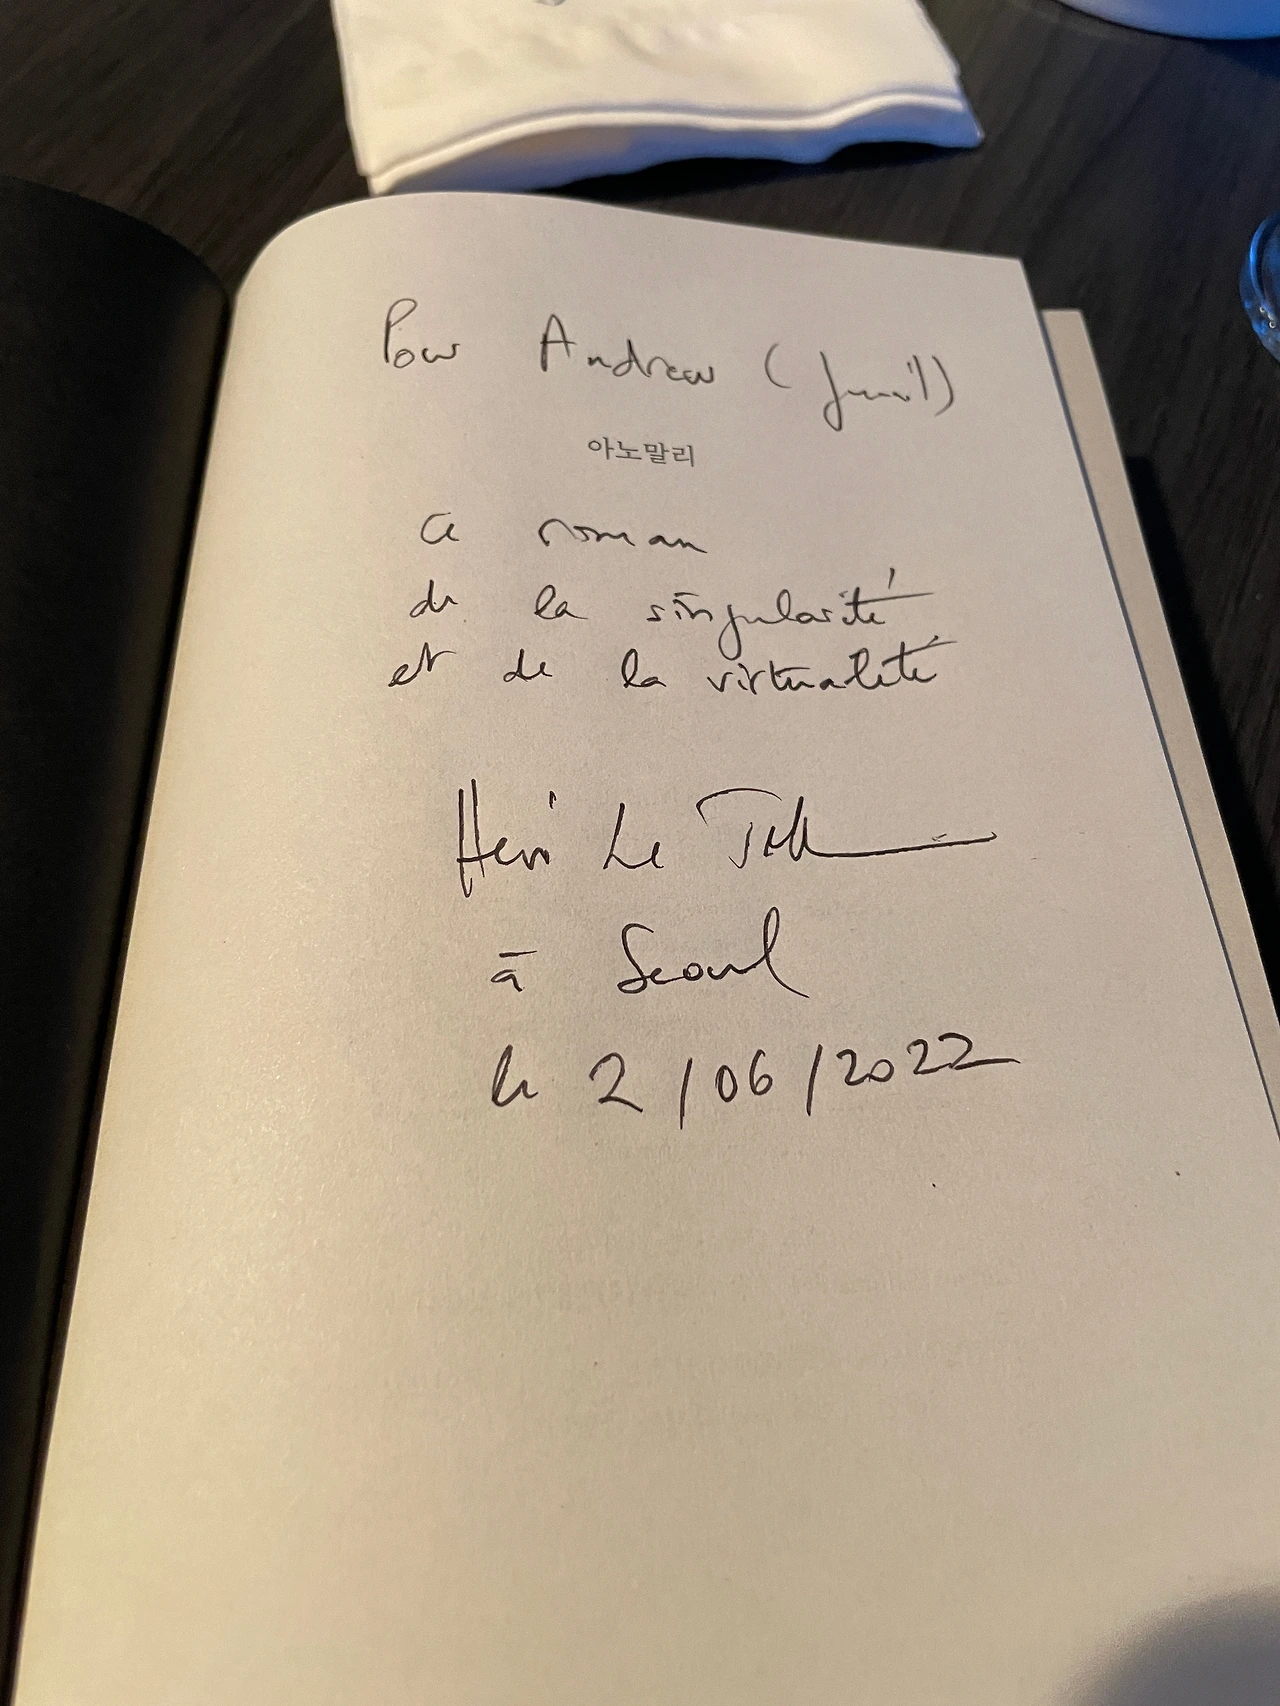 Pour Andrew (Junil)
아노말리
ce roman
de la singularité
et de la virtualité
Hervé Le Tellier
à Seoul
le 2/06/2022